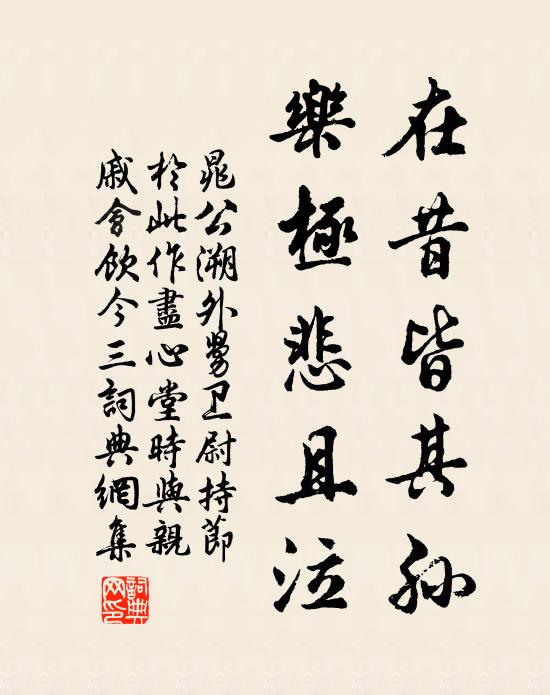 在昔皆其孙
樂極悲且泣
晁公溯外舅卫尉持節
於此作盡心堂時與親
戚會飲今三詞典網集
詞典网印